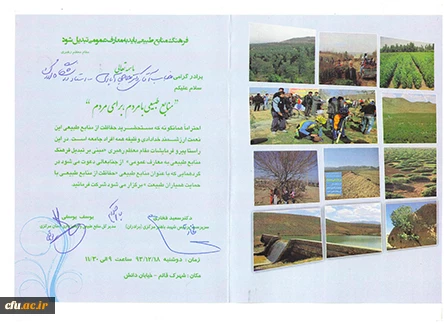 فرهنگ منابع طبیعی باید به معارف عمومی تبدیل شود
مقام معظم رهبری
باسمه تعالی
برادر گرامی جناب آقای
سلام علیکم
"منابع طبیعی با مردم برای مردم"
احتراماً همانگونه که مستحضرید حفاظت از منابع طبیعی این
نعمت ارزشمند خدادادی وظیفه همه افراد جامعه است. در این
راستا پیرو فرمایشات مقام معظم رهبری "مبنی بر تبدیل فرهنگ
منابع طبیعی به معارف عمومی" از جنابعالی دعوت می شود در
گردهمایی که با عنوان منابع طبیعی "حفاظت از منابع طبیعی با
حمایت همیاران طبیعت" برگزار می شود شرکت فرمائید.
دکتر سعید غفاری
یوسف یوسفی
زمان : دوشنبه ۹۳/۱۲/۱۸ ساعت ۹ الی ۱۱/۳۰
مکان: شهرک قائم - خیابان دانش
cfu.ac.ir